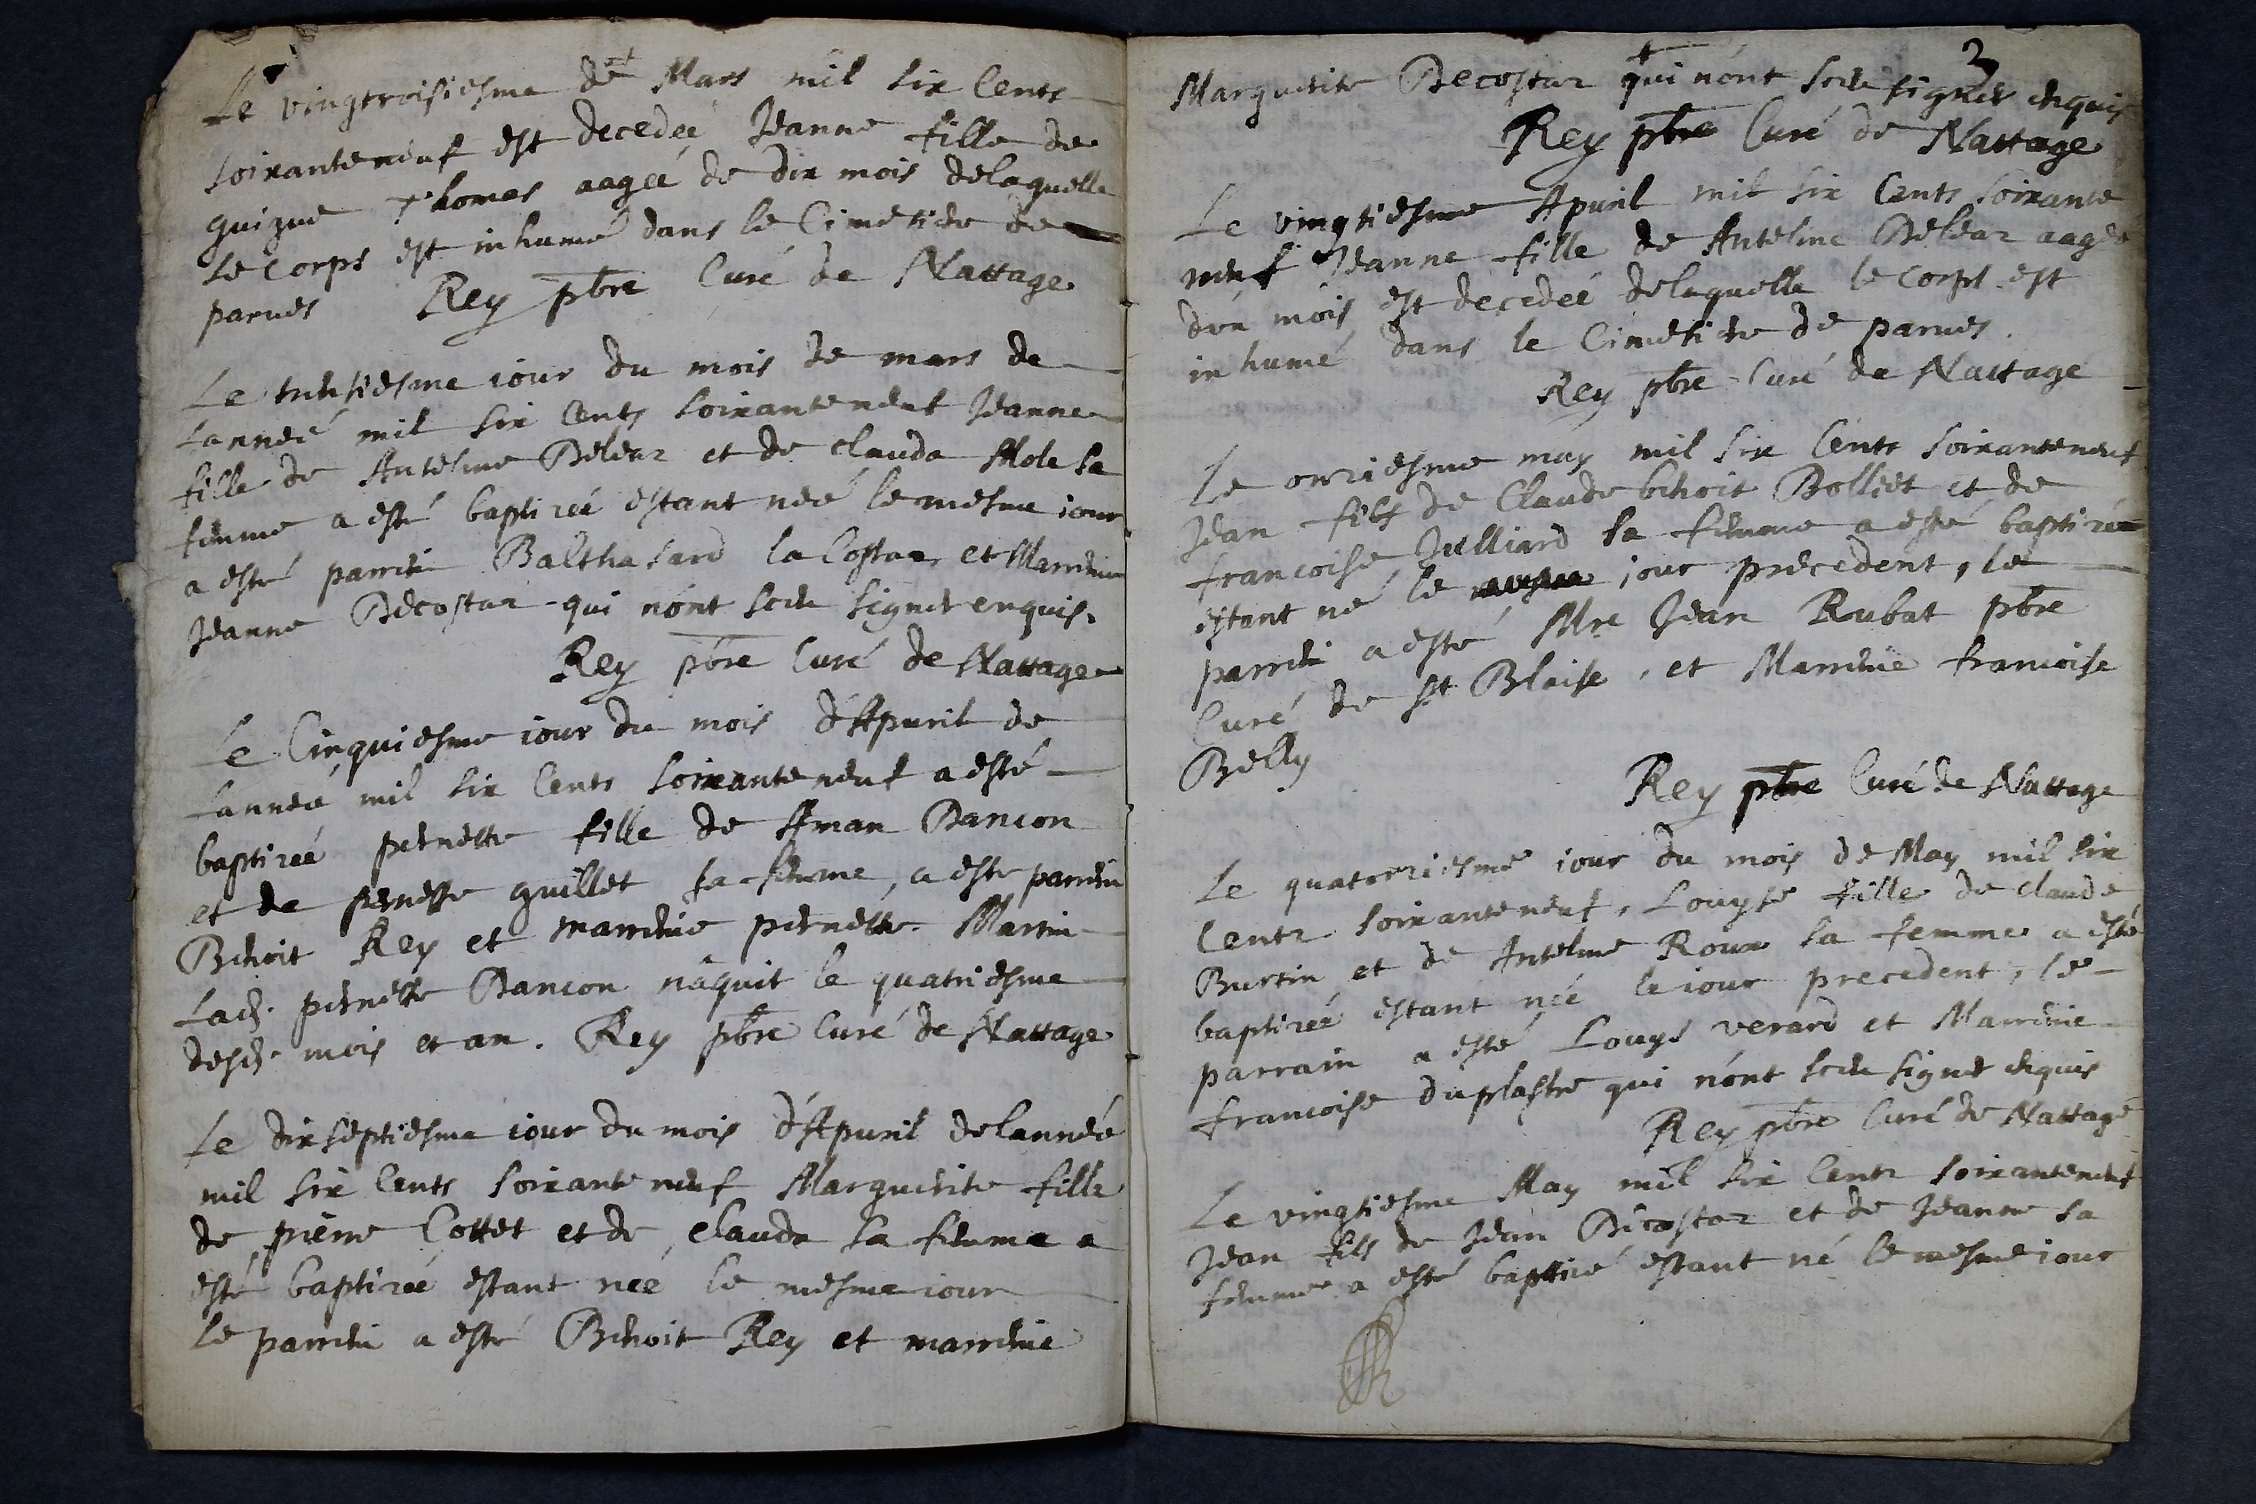 Le vingtroisiesme de Mars mil six Cents
soixanteneuf est decedeé Jeanne fille de
guigue Thomas aageé de dix mois delaquelle
le Corps est inhumé dans le Cimetiere de
parues Rey pbre Curé de Nattage
Le trentiesme iour du mois de mars de
Lanneé mil six Cents soixanteneuf Jeanne
fille de Antelme Beleaz et de clauda Mole sa
femme a esté baptizeé estant neé le mesme iour
a esté parrein Balthasard la Costaz et Marreine
Jeanne Decostaz qui n'ont sceu signer enquis.
Rey pbre Curé de Nattage
Le Cinquiesme iour du mois d'Apuril de
Lanneé mil six Cents soixanteneuf a esté
baptizeé pernette fille de Aman Dancon
et de pernette guillet sa femme, a este parrein
Benoit Rey et marreine pernette Martin
Lad. pernette Dancon náquit le quatriesme
desd. mois et an. Rey pbre Curé de Nattage
Le dixseptiesme iour du mois d'Apuril delanneé
mil six Cents soixanteneuf Marguerite fille
de pierre Cottet et de clauda sa femme a
esté baptizeé estant neé le mesme iour
le parrein a esté Benoit Rey et marreine
3
Marguerite Decostaz qui n'ont sceu signer enquis
Rey pbre Curé de Nattage
Le vingtiesme Apuril mil six Cents soixante
neuf Jeanne fille de Antelme Beleaz aageé
d'un mois est decedeé delaquelle le Corps est
inhumé dans le Cimetiere de parues.
Rey pbre Curé de Nattage
Le onziesme may mil six Cents soixanteneuf
Jean fils de Claude benoit Bolliet et de
francoise Julliard sa femme a esté baptizé
estant né le iour precedent, le
parrein a esté Mre Jean Rubat pbre
Curé de St Blaise, et Marreine francoise
Belly
Rey pbre Curé de Nattage
Le quatorziesme iour du mois de May mil six
Cents soixanteneuf, Louyse fille de Claude
Burtin et de Antelme Roux sa femme a esté
baptizeé estant neé le iour precedent, le
parrain a esté Louys verard et Marreine
francoise duplastre qui n'ont sceu signer enquis
Rey pbre Curé de Nattage
Le vingtiesme May mil six Cents soixanteneuf
Jean fils de Jean Decostaz et de Jeanne sa
femme a esté baptizé estant né le mesme iour